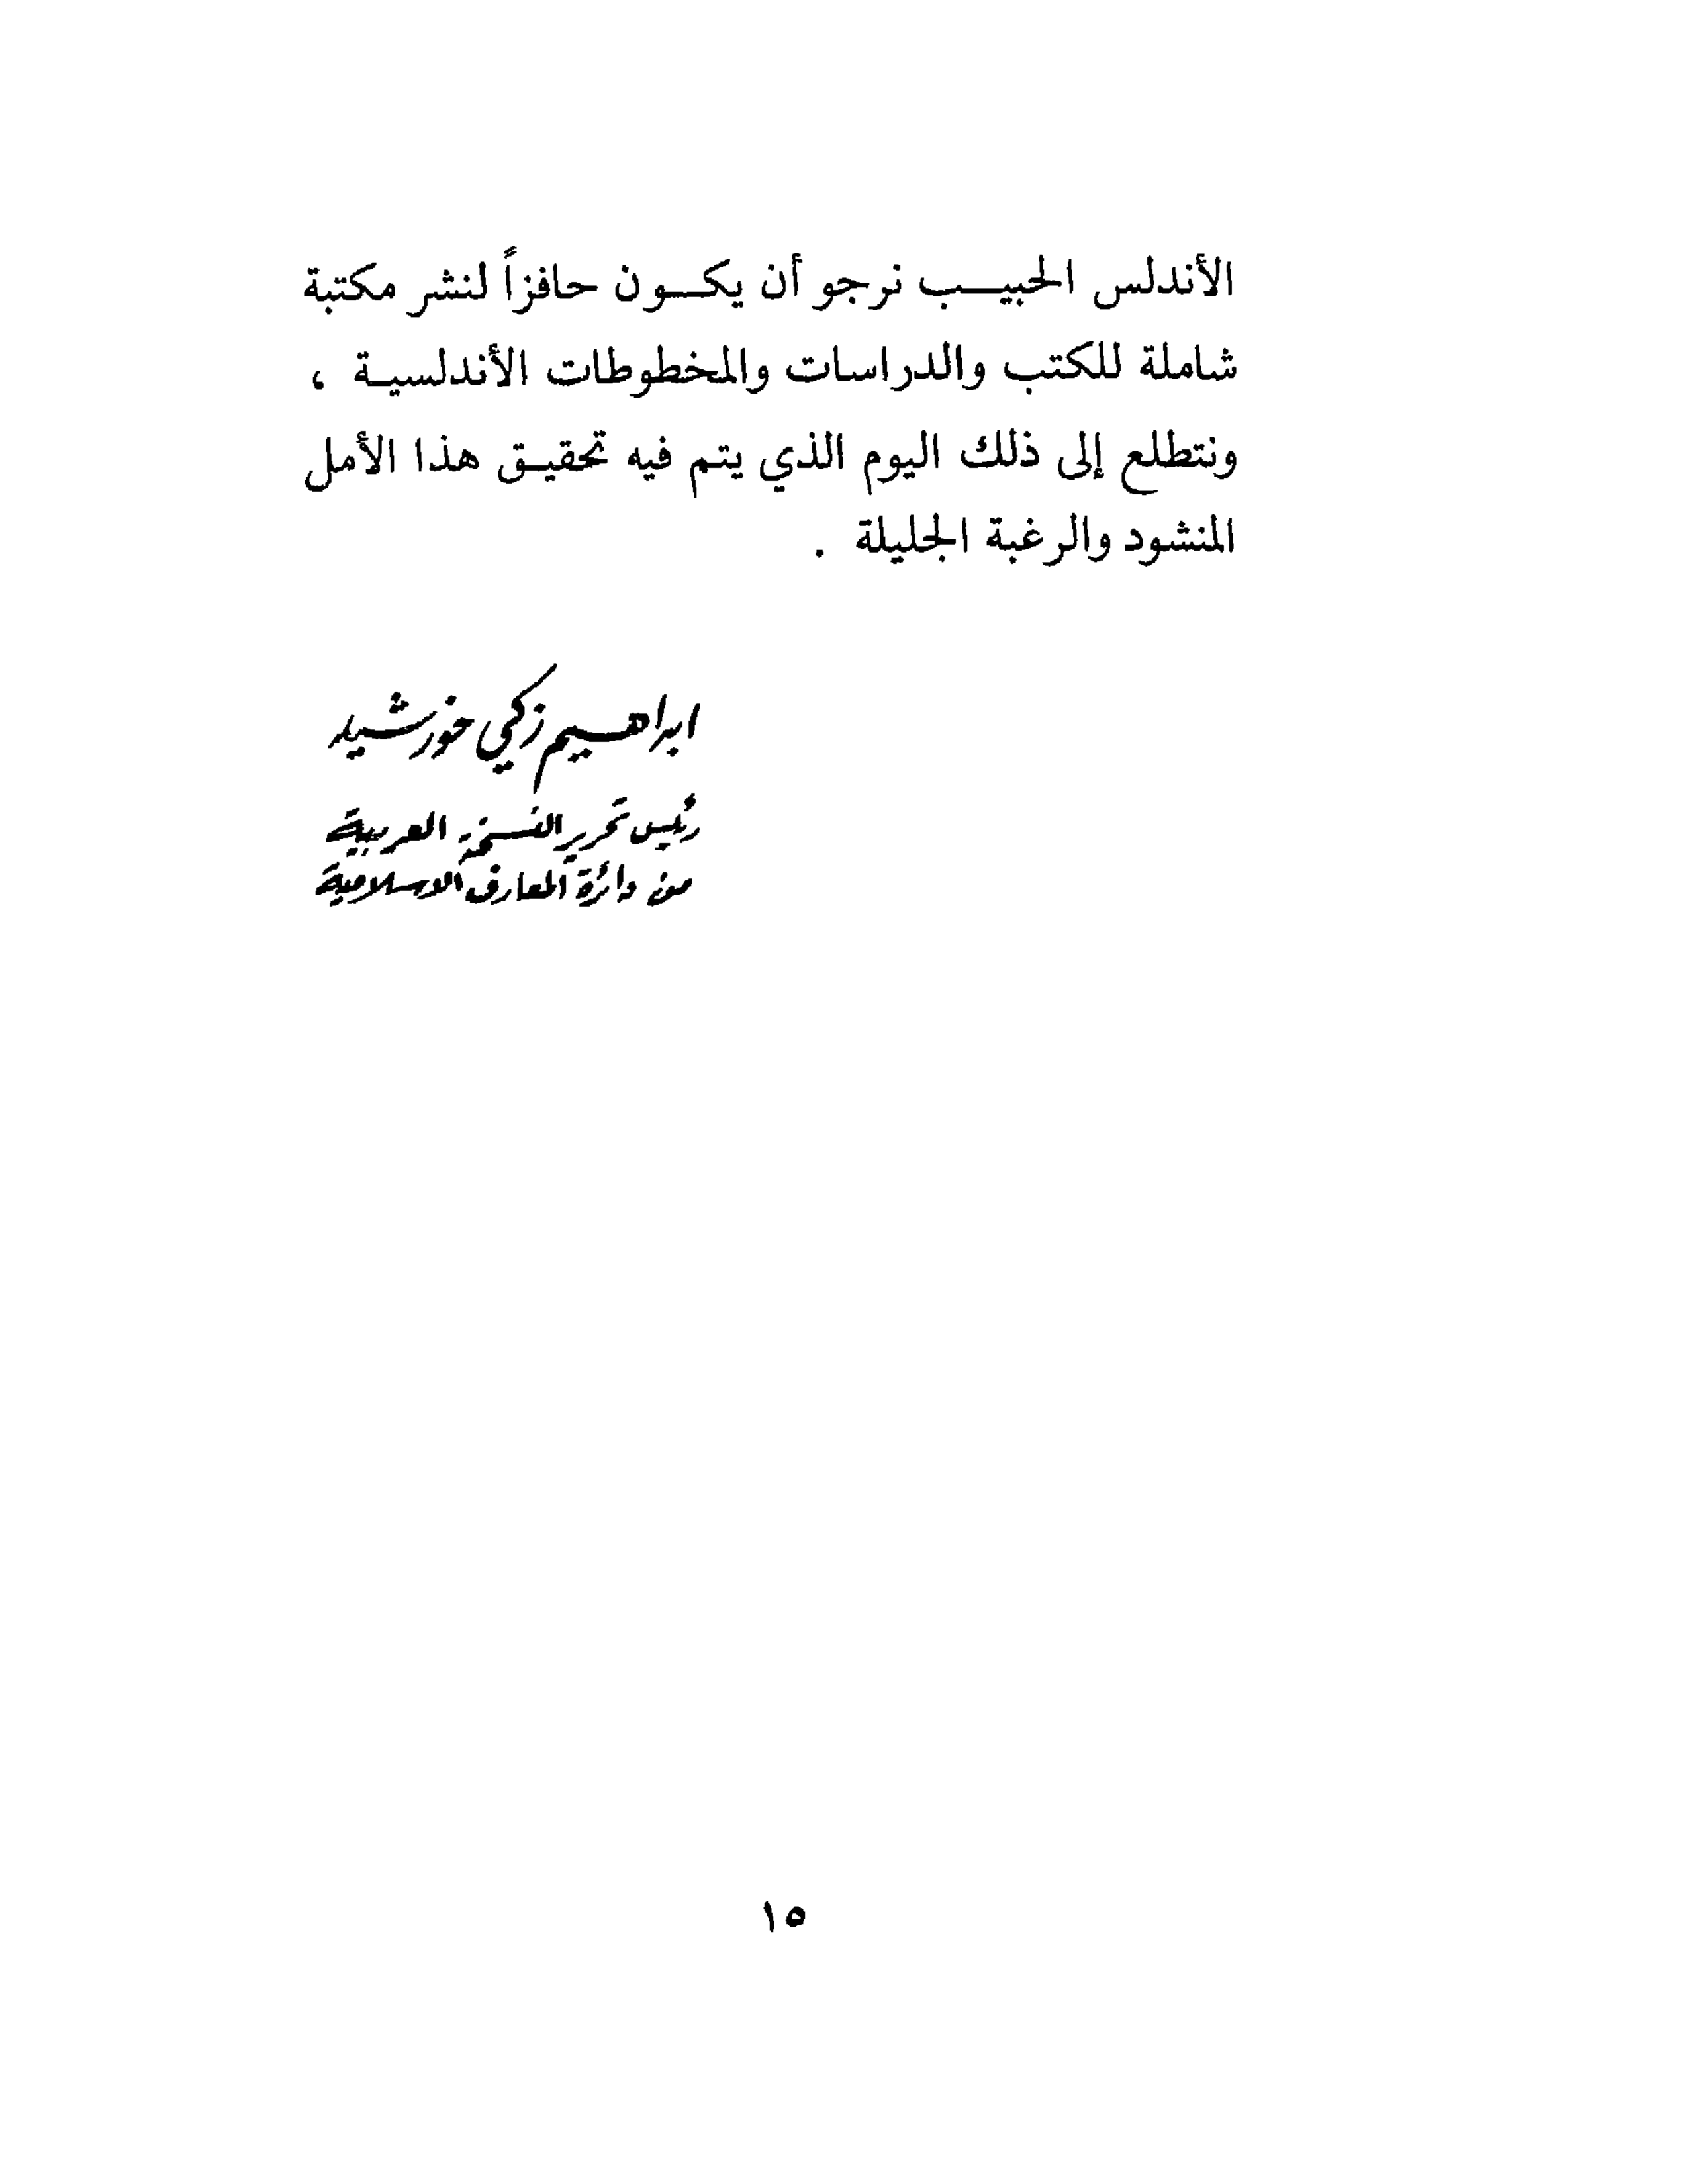 الأندلس الحبيب نرجو أن يكون حافزاً لنشر مكتبة
شاملة للكتب والدراسات والمخطوطات الأندلسية ،
ونتطلع إلى ذلك اليوم الذي يتم فيه تحقيق هذا الأمل
المنشود والرغبة الجليلة .
ابراهيم زكي خورشيد
رئيس تحرير النسخة العربية
من دائرة المعارف الاسلامية
١٥